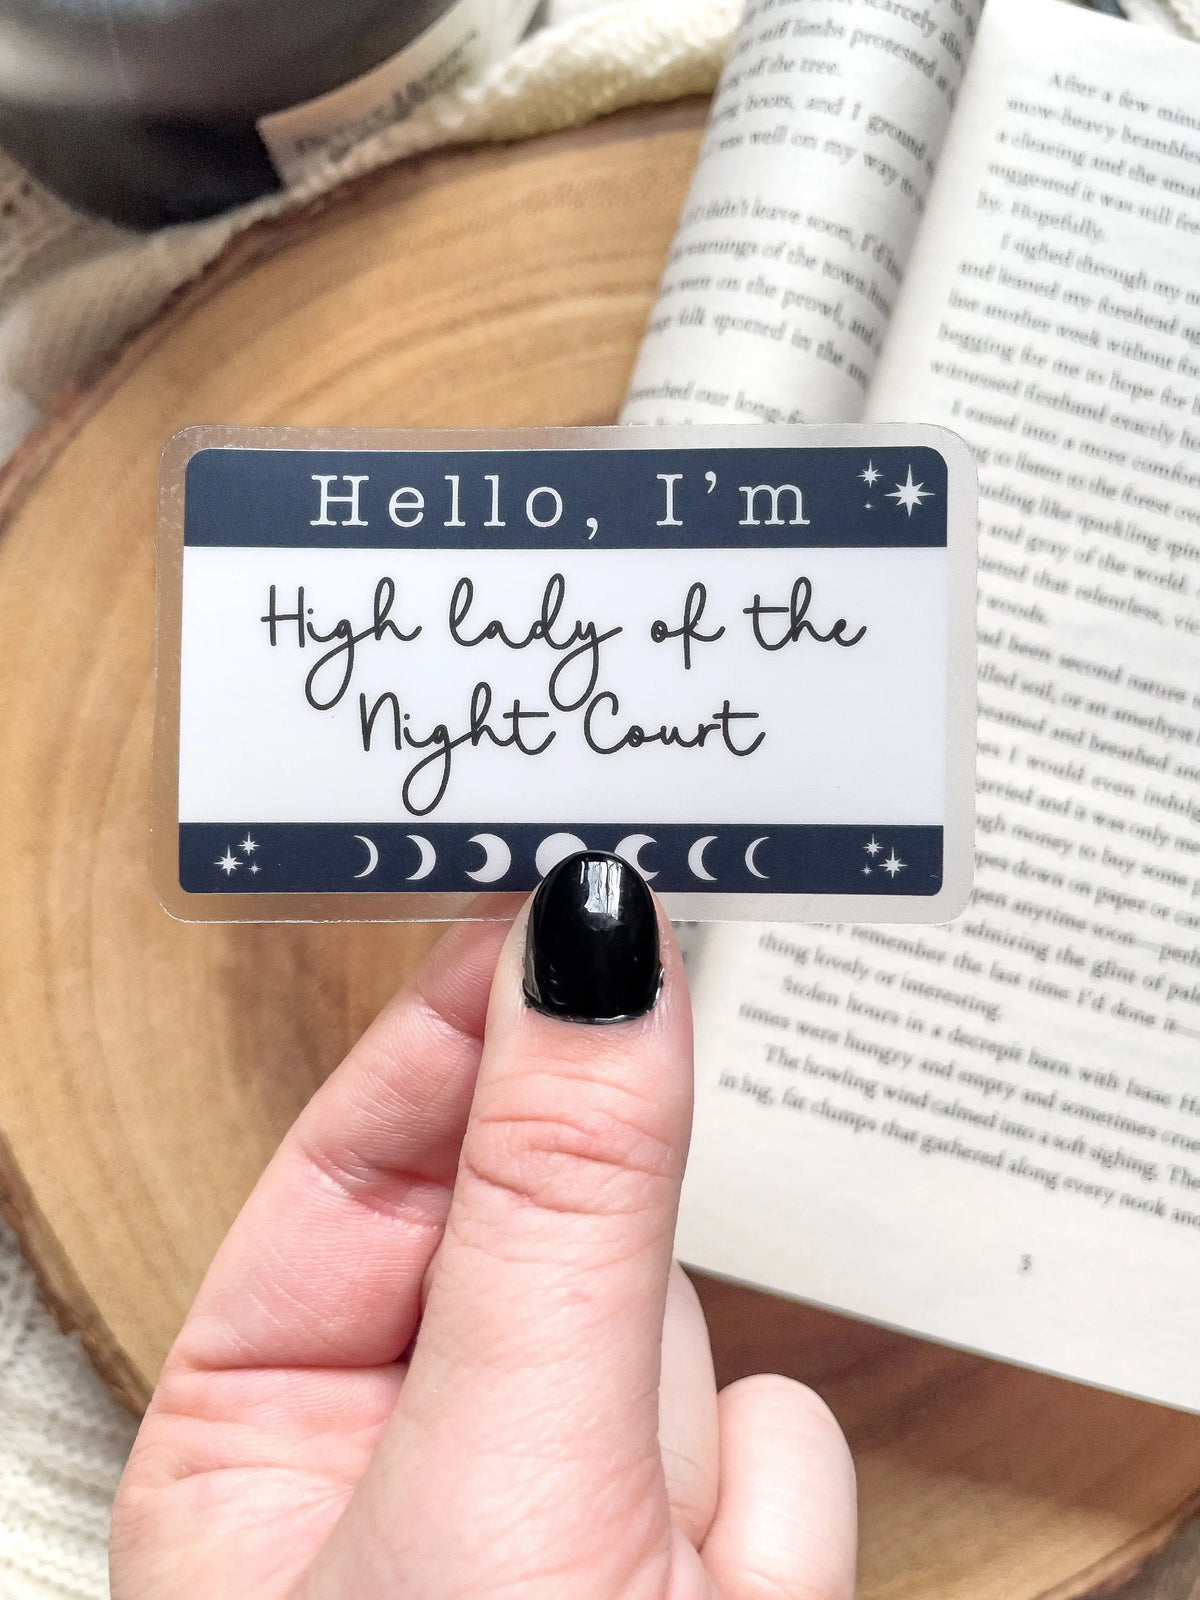 Hello, I'm
High lady of the
Night Court
scarcely
stiff limbs protested
of the tree.
boots, and I ground
was well on my way to
didn't leave soon, I'd
warnings of the town
were on the prowl, and
folk spotted in the
our long-
After a few
snow-heavy
a clearing and the
suggested it was still
by. Hopefully.
I sighed through my
and leaned my forehead
last another week without
begging for me to hope for
witnessed firsthand exactly
I eased into a more
to listen to the forest
like sparkling
and gray of the world.
that relentless,
woods.
been second nature
soil, or an amethyst
and breathed and
I would even
and it was only
money to buy some
down on paper or
anytime soon—
remember the last time I'd done it—
admiring the glint of
thing lovely or interesting.
Stolen hours in a decrepit barn with Isaac
times were hungry and empty and sometimes
The howling wind calmed into a soft sighing. The
in big, fat clumps that gathered along every nook and
3